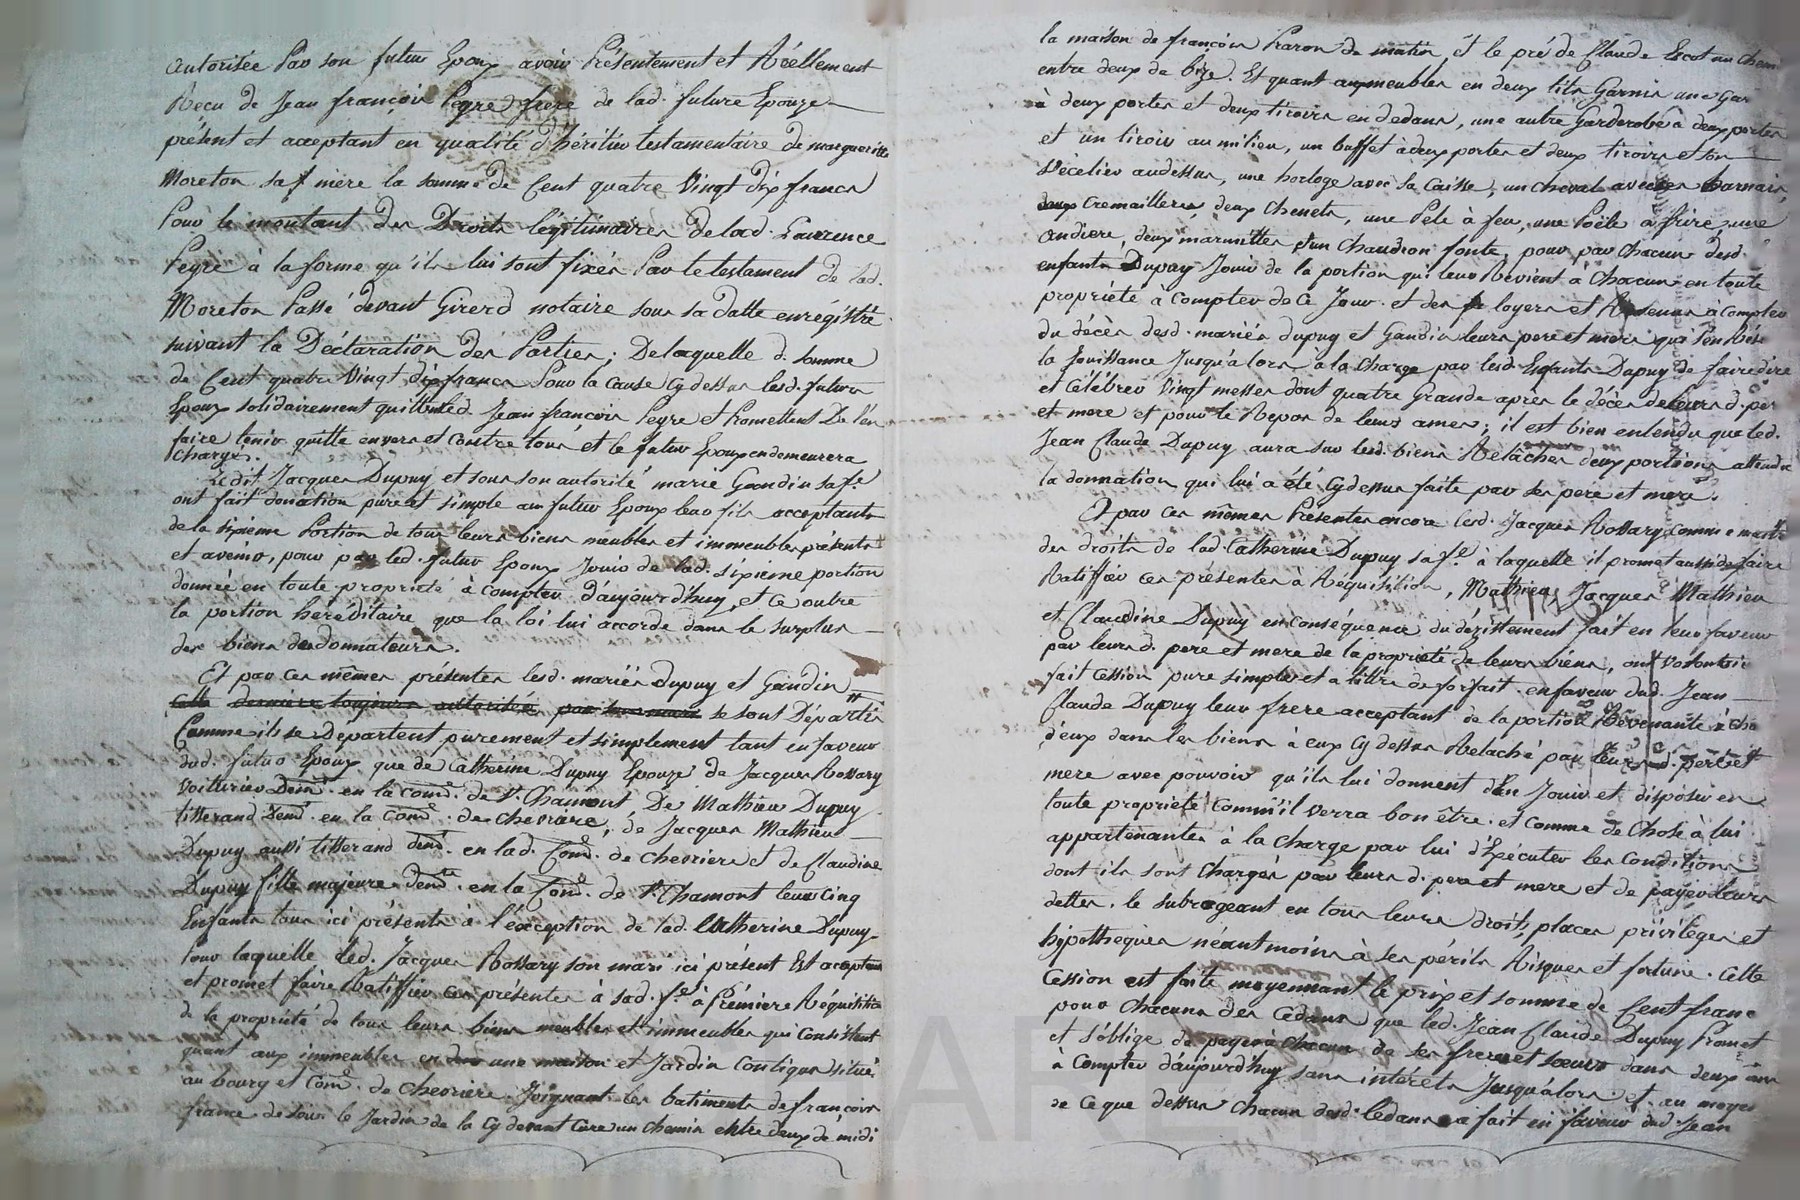 autorisée Par son futur Epoux avoir Présentement et Réellement
Reçu de Jean françois Peyre frere de lad. future Epouze
présent et acceptant en qualité d'héritier testamentaire de margueritte
Moreton sa f mère la somme de Cent quatre Vingt dix francs
Pour le montant des Droits légitimaires de lad. Laurence
Peyre à la forme qu'ils lui sont fixés Par le testament de lad.
Moreton Passé devant Girerd notaire sous sa datte enrégistré
suivant la Déclaration des Parties; De laquelle d. somme
de Cent quatre Vingt dix francs Pour la Cause Cy dessus lesd. futurs
Epoux solidairement quittent led. Jean françois Peyre et Promettent De l'en
faire tenir quitte envers et Contre tous et le futur Epoux en demeurera
Chargé.
Ledit Jacques Dupuy et sous son autorité marie Gandin sa f.e
ont fait donation pure et simple au futur Epoux leur fils acceptant
de la sixieme Portion de tous leurs biens meubles et immeubles présents
et avenir, pour par led. futur Epoux Jouir de lad. sixieme portion
donnée en toute propriété à Compter d'aujourd'huy, et ce outre
la portion héréditaire que la loi lui accorde dans le surplus
des biens des donnateurs.
Et par ces mêmes présentes lesd. mariés Dupuy et Gandin
Cette derniere toujours autorisée par son mari se sont Départis
Comme ils se Departent purement et simplement tant en faveur
dud. futur Epoux que de Catherine Dupuy Epouze de Jacques Rossary
Voiturier Demt. en la Come. de St. Chamont De Mathieu Dupuy
titterand Demt. en la Come. de Chevriere, de Jacques Mathieu
Dupuy aussi titterand demt. en lad. Come. de chevriere et de Claudine
Dupuy fille majeure demte. en la Come. de St. Chamont leurs Cinq
Enfants tous ici présents à l'exception de lad. Catherine Dupuy
Pour laquelle led. Jacques Rossary son mari ici présent Est acceptant
et promet faire Ratiffier ces présentes à sad. f.e à Prémiere Réquisition
de la propriété de tous leurs biens meubles et immeubles qui Consistent
quant aux immeubles en une maison et Jardin Contigus situé
au bourg et Come. de Chevriere. Joignant les batiments de françois
france de soir le Jardin de la Cy devant Cure un Chemin entre deux de midi
la maison de françois Praron de matin, et le pré de Claude Escot un Chemin
entre deux de bize. Et quant aux meubles en deux lits Garnis une Gar
à deux portes et deux tiroirs en dedans, une autre Garderobe à deux portes
et un tiroir au milieu, un buffet à deux portes et deux tiroirs et son
Vécelier au dessus, une horloge avec sa Caisse, un cheval avec ses harnais,
deux Cremailleres, deux Chenets, une Pele à feu, une Poële à frire, une
andiere, deux marmittes d'un Chaudron fonte pour par Chacun desd.
enfants Dupuy Jouir de la portion qui leur Revient à Chacun en toute
propriété à Compter de ce Jour. et des loyers et Revenus à Compter
du décès desd. mariés Dupuy et Gandin leurs pere et mere qui s'en Rése
la Jouissance Jusqu'alors à la charge par lesd. Enfants Dupuy de faire dire
et Célébrer Vingt messes dont quatre Grande après le décès de leurs d. per
et mere et pour le Repos de leurs ames; il est bien entendu que led.
Jean Claude Dupuy aura sur lesd. biens Relâchés deux portions attendu
la donnation qui lui a été Cy dessus faite par ses pere et mere.
Et par ces mêmes Présentes encore led. Jacques Rossary Comme maitre
des droits de lad. Catherine Dupuy sa f.e à laquelle il promet aussi de faire
Ratiffier ces présentes à Réquisition, Mathieu, Jacques Mathieu
et Claudine Dupuy en conséquence du dézistement fait en leur faveur
par leurs d. pere et mere de la propriété de leurs biens, ont Volontaire
fait Cession pure simple et a tittre de forfait en faveur dud. Jean
Claude Dupuy leur frere acceptant de la portion Revenante à cha
d'eux dans les biens à eux Cy dessus Relaché par leurs d. pere et
mere avec pouvoir qu'ils lui donnent d'en Jouir et disposer en
toute propriété comm'il verra bon être. et comme de Chose à lui
appartenantes à la Charge par lui d'Exécuter les Conditions
dont ils sont Chargés par leurs d. pere et mere et de payer leurs
dettes. le subrogeant en tous leurs droits, places priviléges et
hipotheques néantmoins à ses périls Risques et fortune. Cette
Cession est faite moyennant le prix et somme de Cent franc
pour Chacuns des Cédans que led. Jean Claude Dupuy Promet
et s'oblige de payer à Chacun de ses freres et soeurs dans deux ans
à Compter d'aujourd'huy sans intérets Jusqu'alors et au moyen
de Ce que dessus Chacun desd. Cédans a fait en faveur dud. Jean